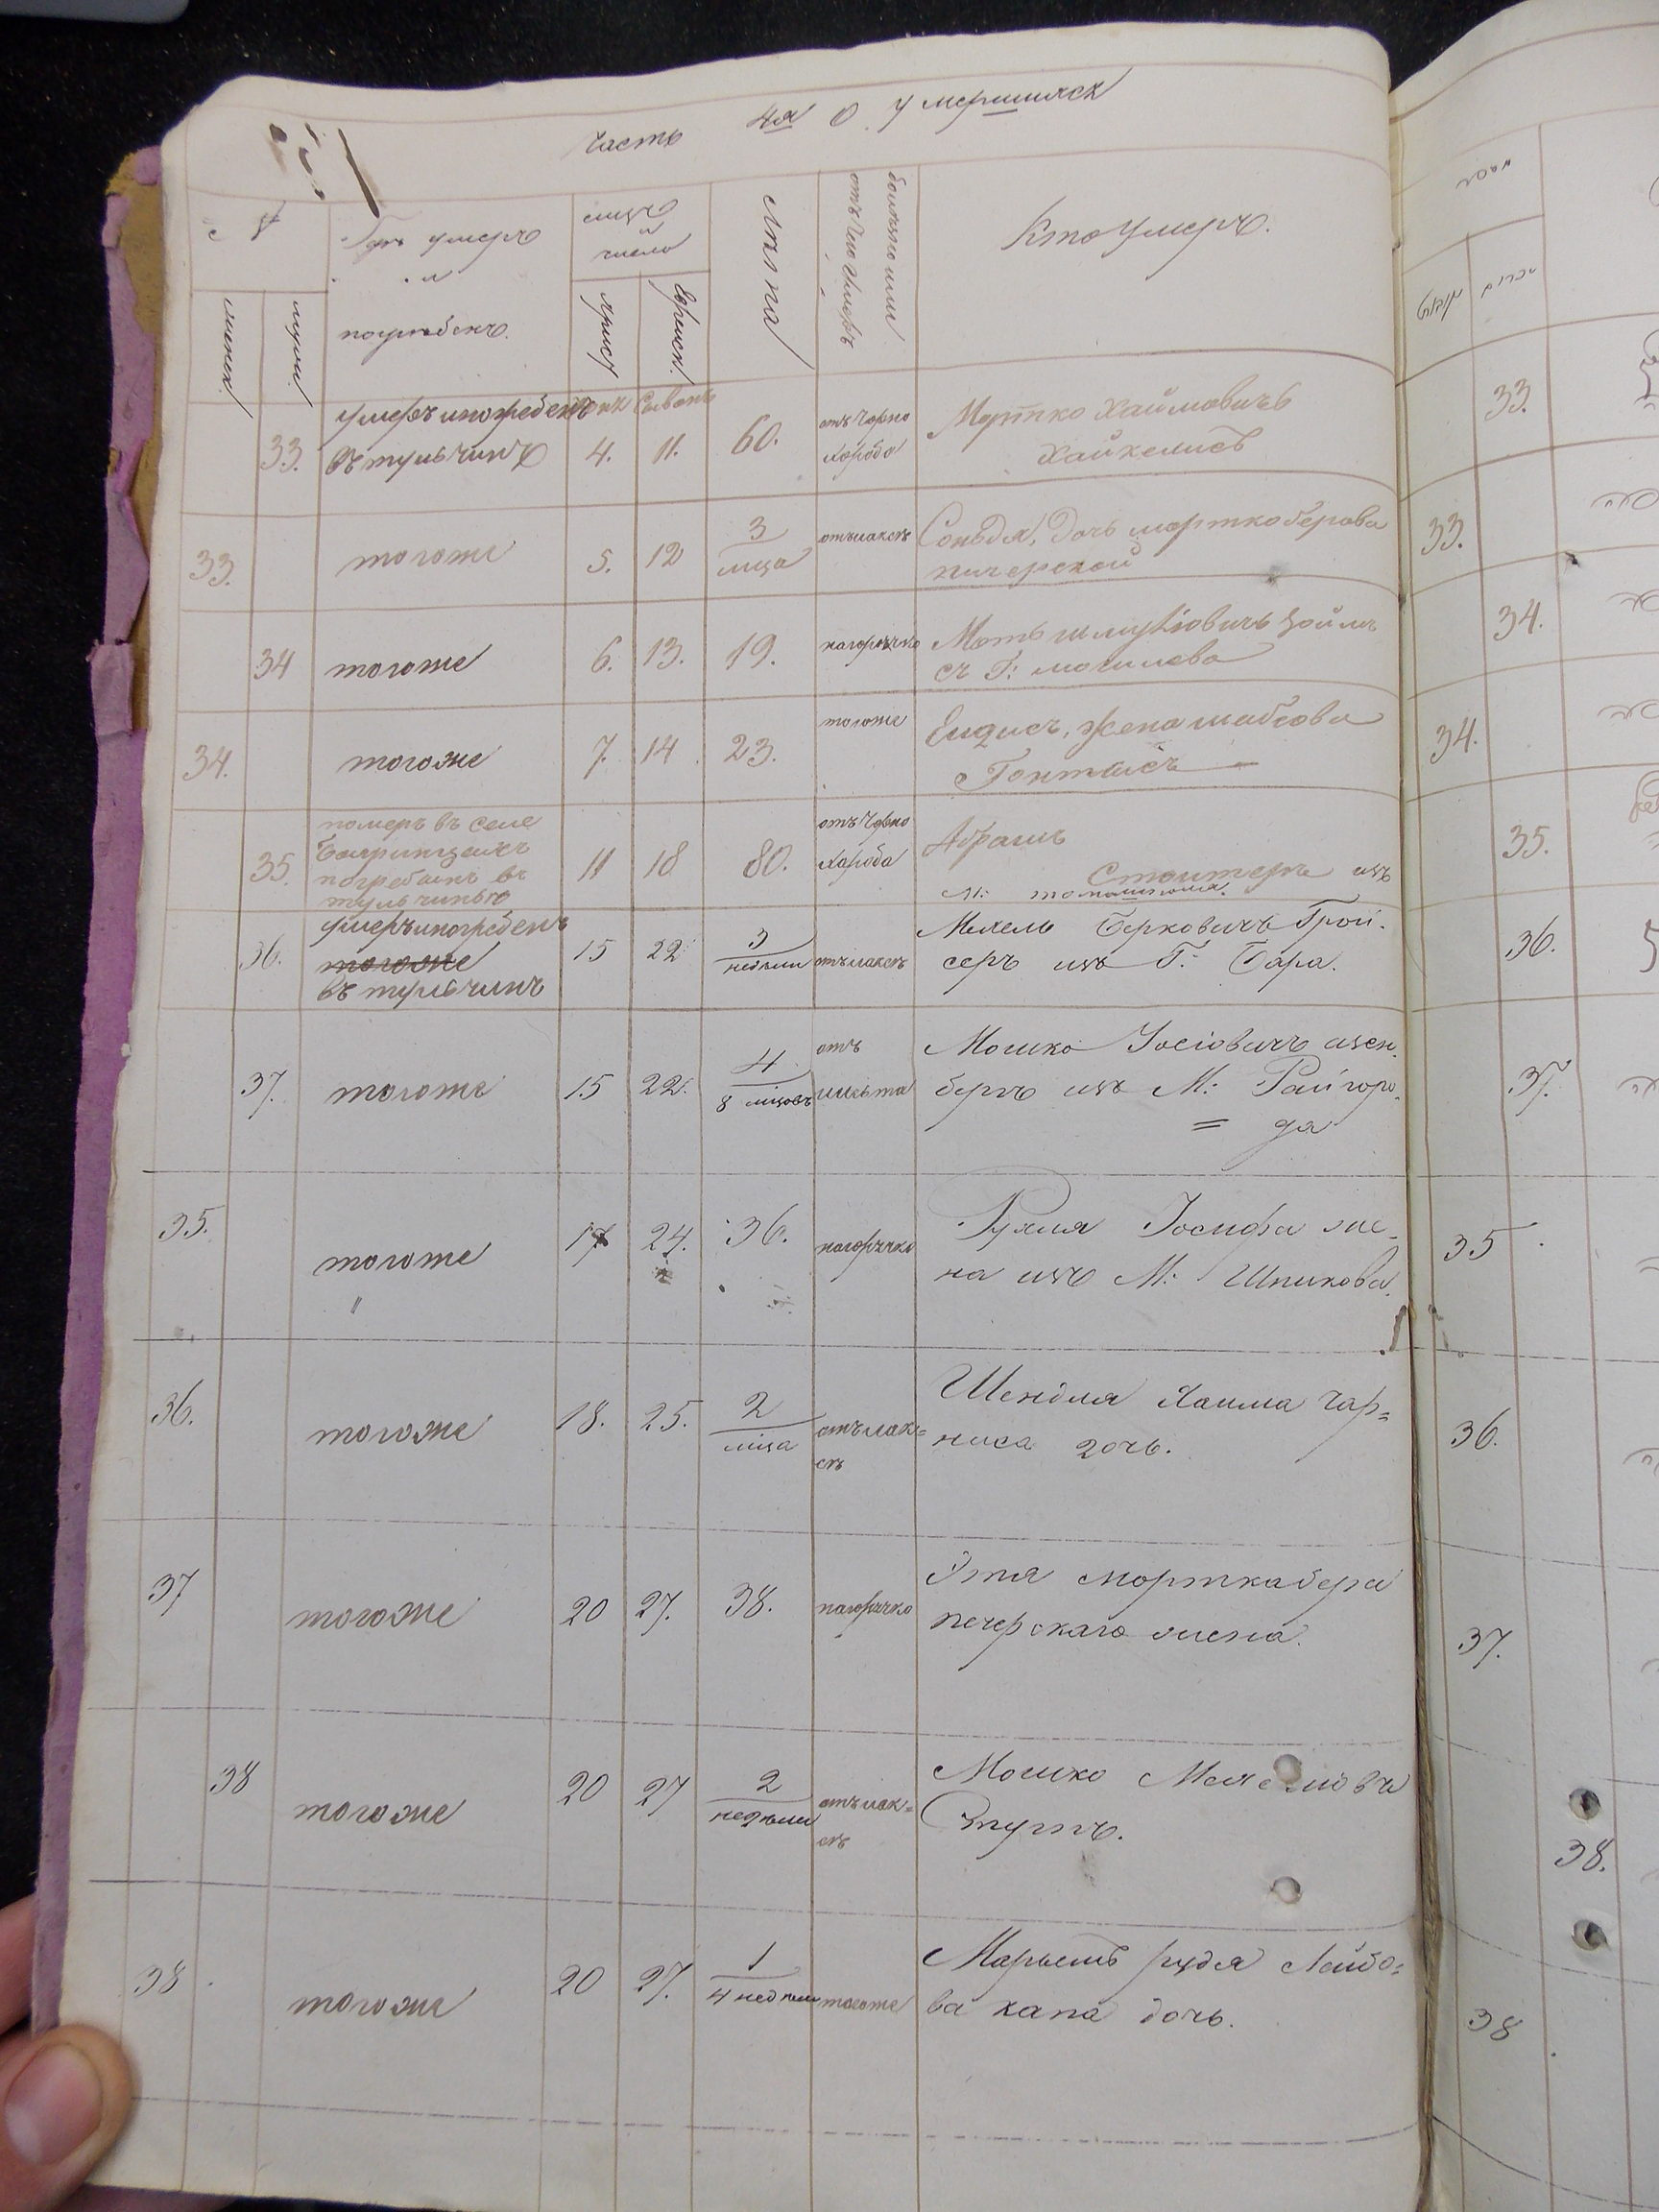 Часть 4я О умершихъ
№
женск.
мужск.
Гдѣ умеръ
и
погребенъ.
мцъ
и
число
христ
Еврейск.
Лѣта
болѣзнь или
отъ чего умеръ
Кто умеръ.
33. умеръ и погребенъ Сивонъ
въ тульчинѣ 4. 11. 60. отъ Чорно хороба Мортко Хаймовичъ
Хайкелисъ
33. тогоже 5. 12 3 мца отъ лаксъ Соньдя, Дочь мортко берова
пичерской
34 тогоже 6. 13. 19. нагорячко Моть шмулiовичъ Цойлъ
съ Г: могилева
34. тогоже 7. 14 23. тогоже Ендисъ, жена шабсова
Гонтасъ
35. померъ въ селе
погребенъ въ
тульчинѣ 11 18 80. отъ Чорно хороба Абрамъ
Стоитеръ изъ
М: томашполя.
36. умеръ и погребенъ
тогоже
въ тульчинѣ 15 22 3 недели отъ лаксъ Мехель Берковичъ Грой.
серъ изъ Г: Бара.
37. тогоже 15 22. 4 8 мцовъ отъ Мошко Iосiовичъ изен.
бергъ изъ М: Райгоро.
= да
35. тогоже 17 24. 36. нагорячко Рухля Iосифа же.
на изъ М: Шпикова.
36. тогоже 18. 25. 2 мца отъ лак=
съ Шендля Хаима Чар=
ниса дочь.
37 тогоже 20 27. 38. нагорячко Этя морткабера
печерскаго жена.
38 тогоже 20 27 2 недѣли отъ лак=
съ Мошко
38 тогоже 20 27. 1 4 недѣли тогоже Марьемъ рудя Лейбо=
ва капа дочь.
33.
33.
34.
34.
35.
36.
37.
35
36.
37.
38.
38